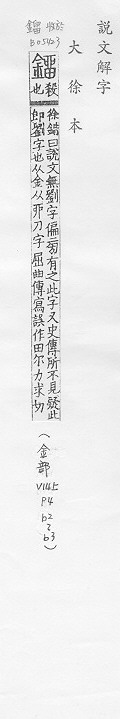 說文解字
大徐本
鐂 收於
B05423
鐂
殺也
徐鍇曰說文無劉字偏旁有之此字又史傳所不見疑此
即劉字也从金从丣刀字屈曲傳寫誤作田尔力求切
(金部
V14下
P4
b2
~
b3)